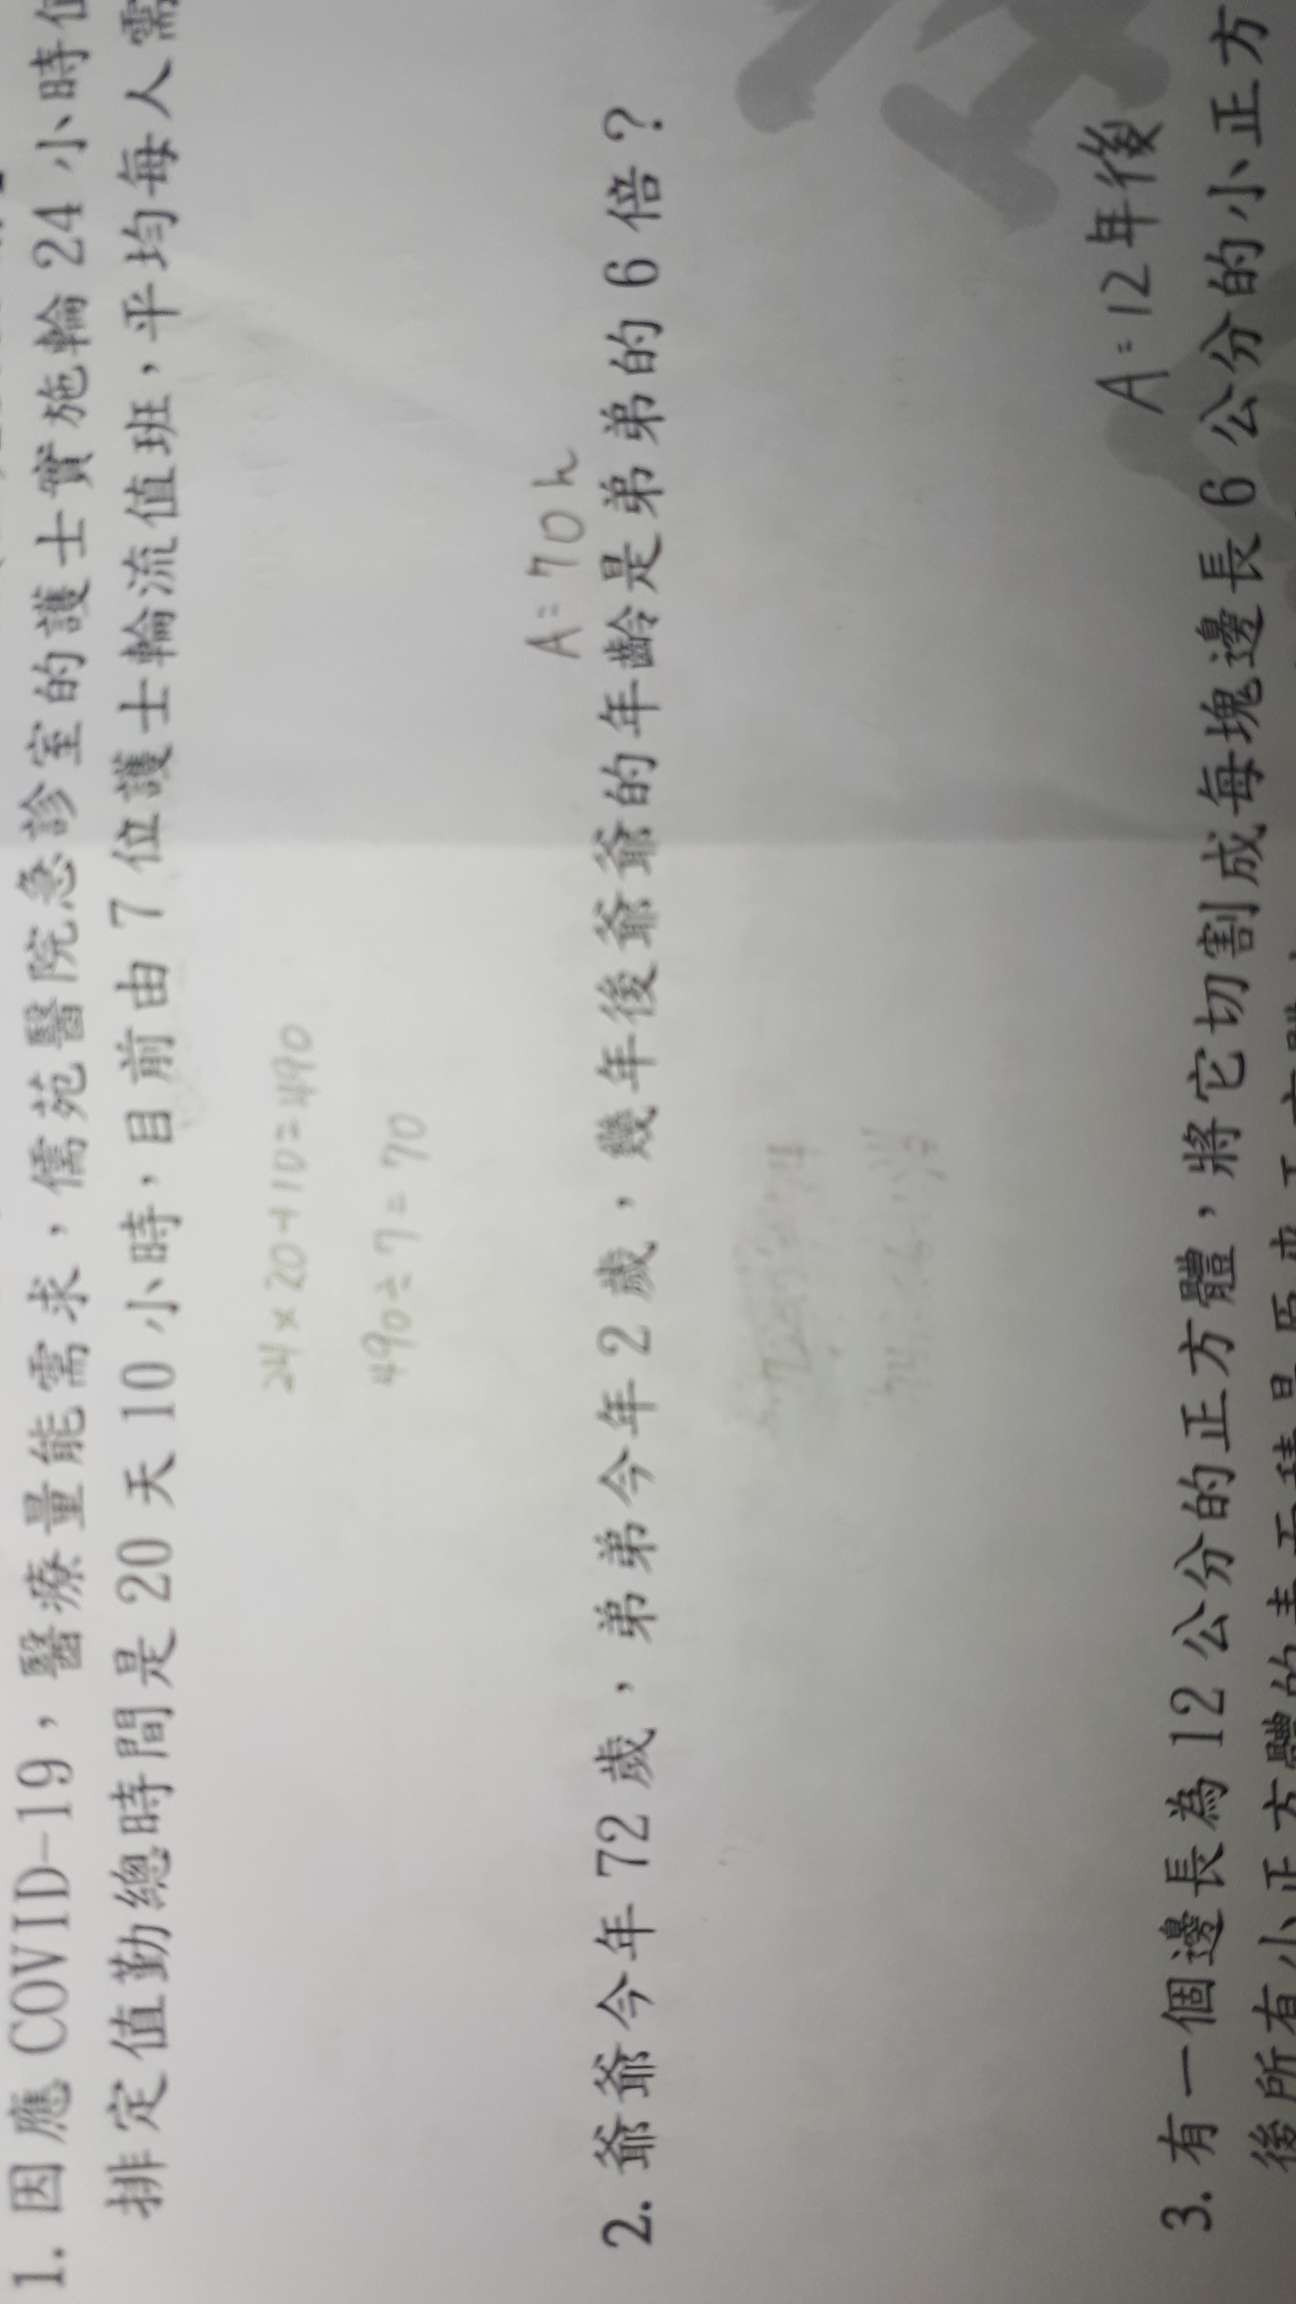 1. 因應 COVID-19，醫療量能需求，儒苑醫院急診室的護士實施輪 24 小時值
排定值勤總時間是 20 天 10 小時，目前由 7 位護士輪流值班，平均每人需
24×20+10=490
490÷7=70
A=70h
2. 爺爺今年 72 歲，弟弟今年 2 歲，幾年後爺爺的年齡是弟弟的 6 倍？
A=12年後
3. 有一個邊長為 12 公分的正方體，將它切割成每塊邊長 6 公分的小正方
後所有小正方體的表面積是原來正方體